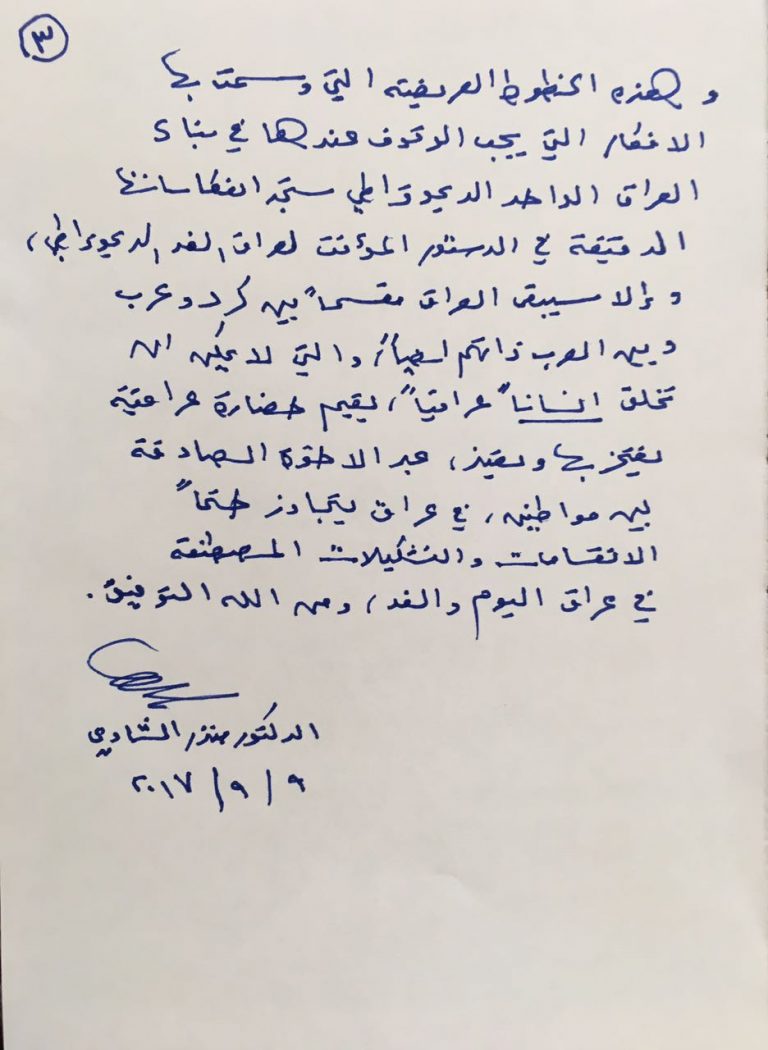 ٣
وهذه الخطوط العريضة التي وسمت بها
الافكار التي يجب الوقوف عندها في بناء
العراق الواحد الديموقراطي ستجد انعكاساتها
الدقيقة في الدستور المؤقت لعراق الغد الديموقراطي،
والا سيبقى العراق مقسماً بين كرد وعرب
وبين العرب ذاتهم ايضاً، والتي لا يمكن ان
تخلق انساناً عراقياً، يقيم حضارة عراقية
يفتخر بها ويعتز، عبر الاخوة الصادقة
بين مواطنيه، في عراق يتجاوز حتماً
الانقسامات والتشكيلات المصطنعة
في عراق اليوم والغد، ومن الله التوفيق.
الدكتور منذر الشاوي
٩ / ٩ / ٢٠١٧